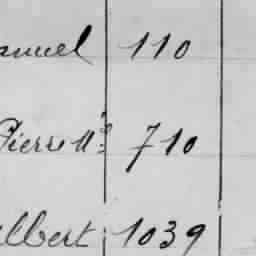 anuel 110
Pierre Mce 710
lbert 1039